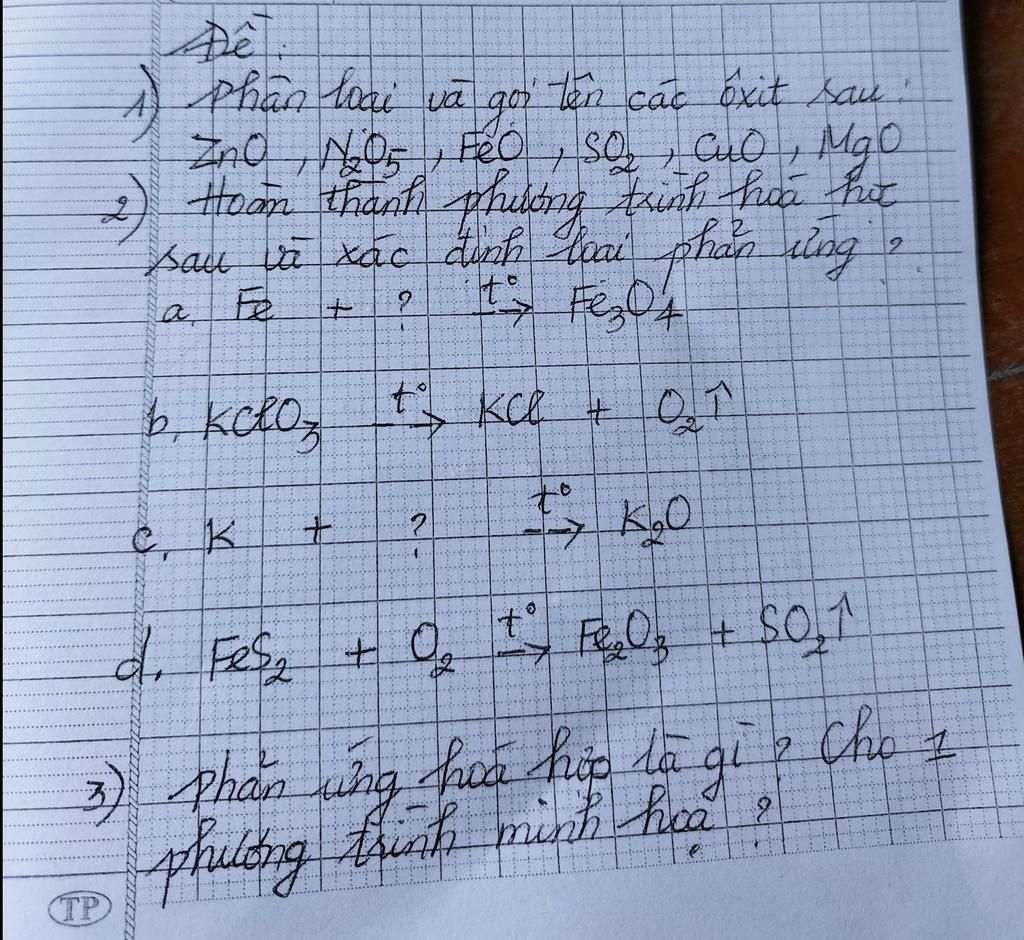 Đề:
1) Phân loại và gọi tên các ôxit sau:
ZnO, N₂O₅, FeO, SO₂, CuO, MgO
2) Hoàn thành phương trình hoá học
sau và xác định loại phản ứng?
a. Fe + ? --t°--> Fe₃O₄
b. KClO₃ --t°--> KCl + O₂↑
c. K + ? --t°--> K₂O
d. FeS₂ + O₂ --t°--> Fe₂O₃ + SO₂↑
3) Phản ứng hoá hợp là gì? Cho 1
phương trình minh hoạ?
TP